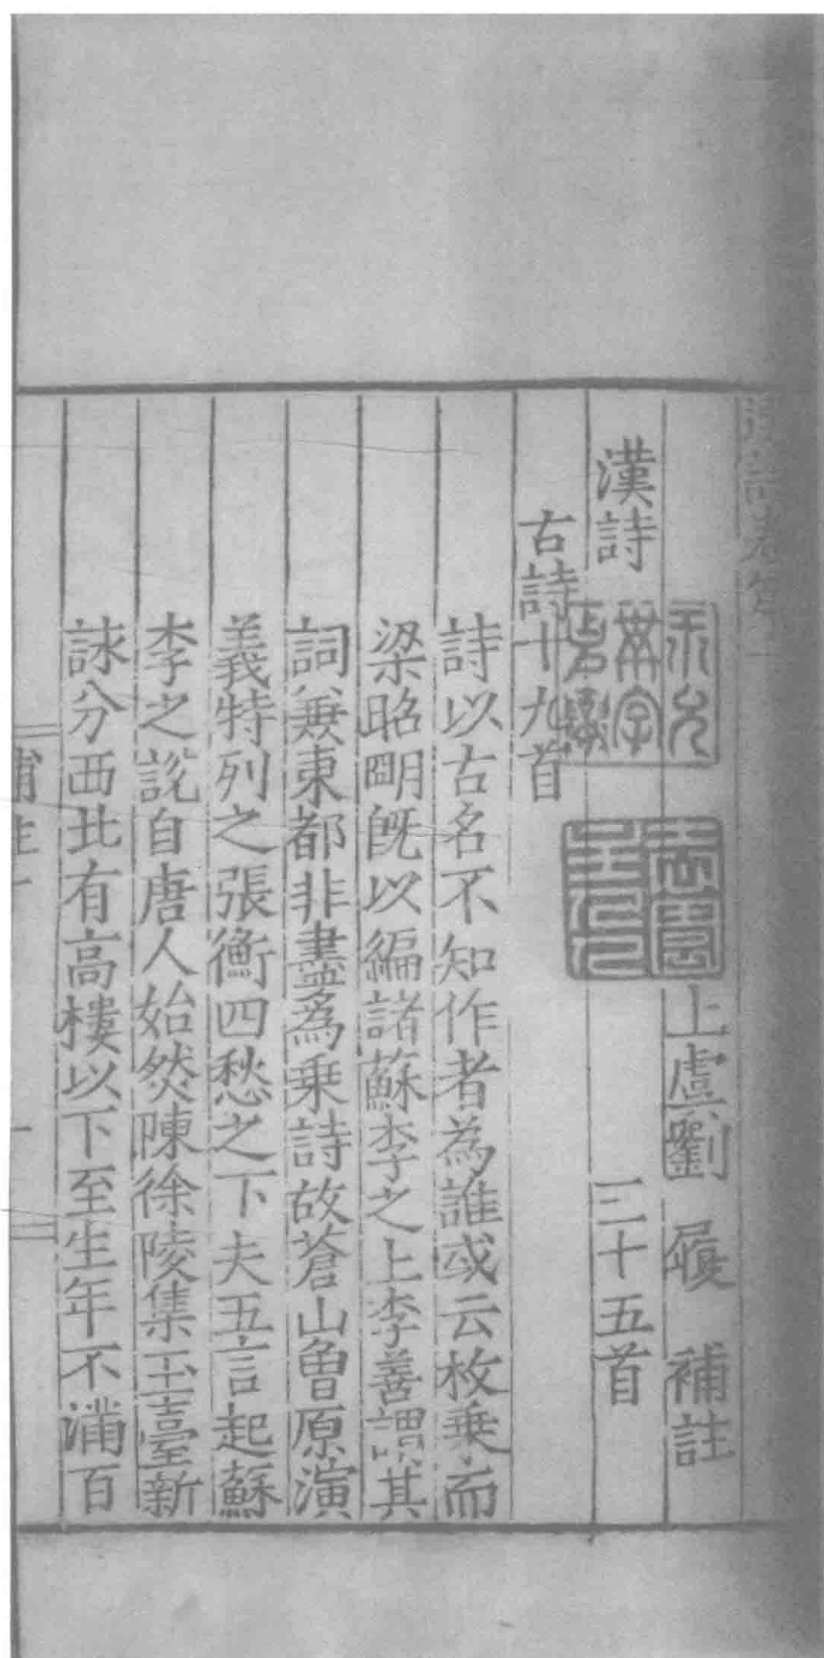 上虞劉 履 補註
漢詩 三十五首
古詩十九首
詩以古名不知作者為誰或云枚乗而
梁昭明既以編諸蘇李之上李善謂其
詞兼東都非盡為乗詩故蒼山曾原演
義特列之張衡四愁之下夫五言起蘇
李之說自唐人始然陳徐陵集玉臺新
詠分西北有高樓以下至生年不滿百